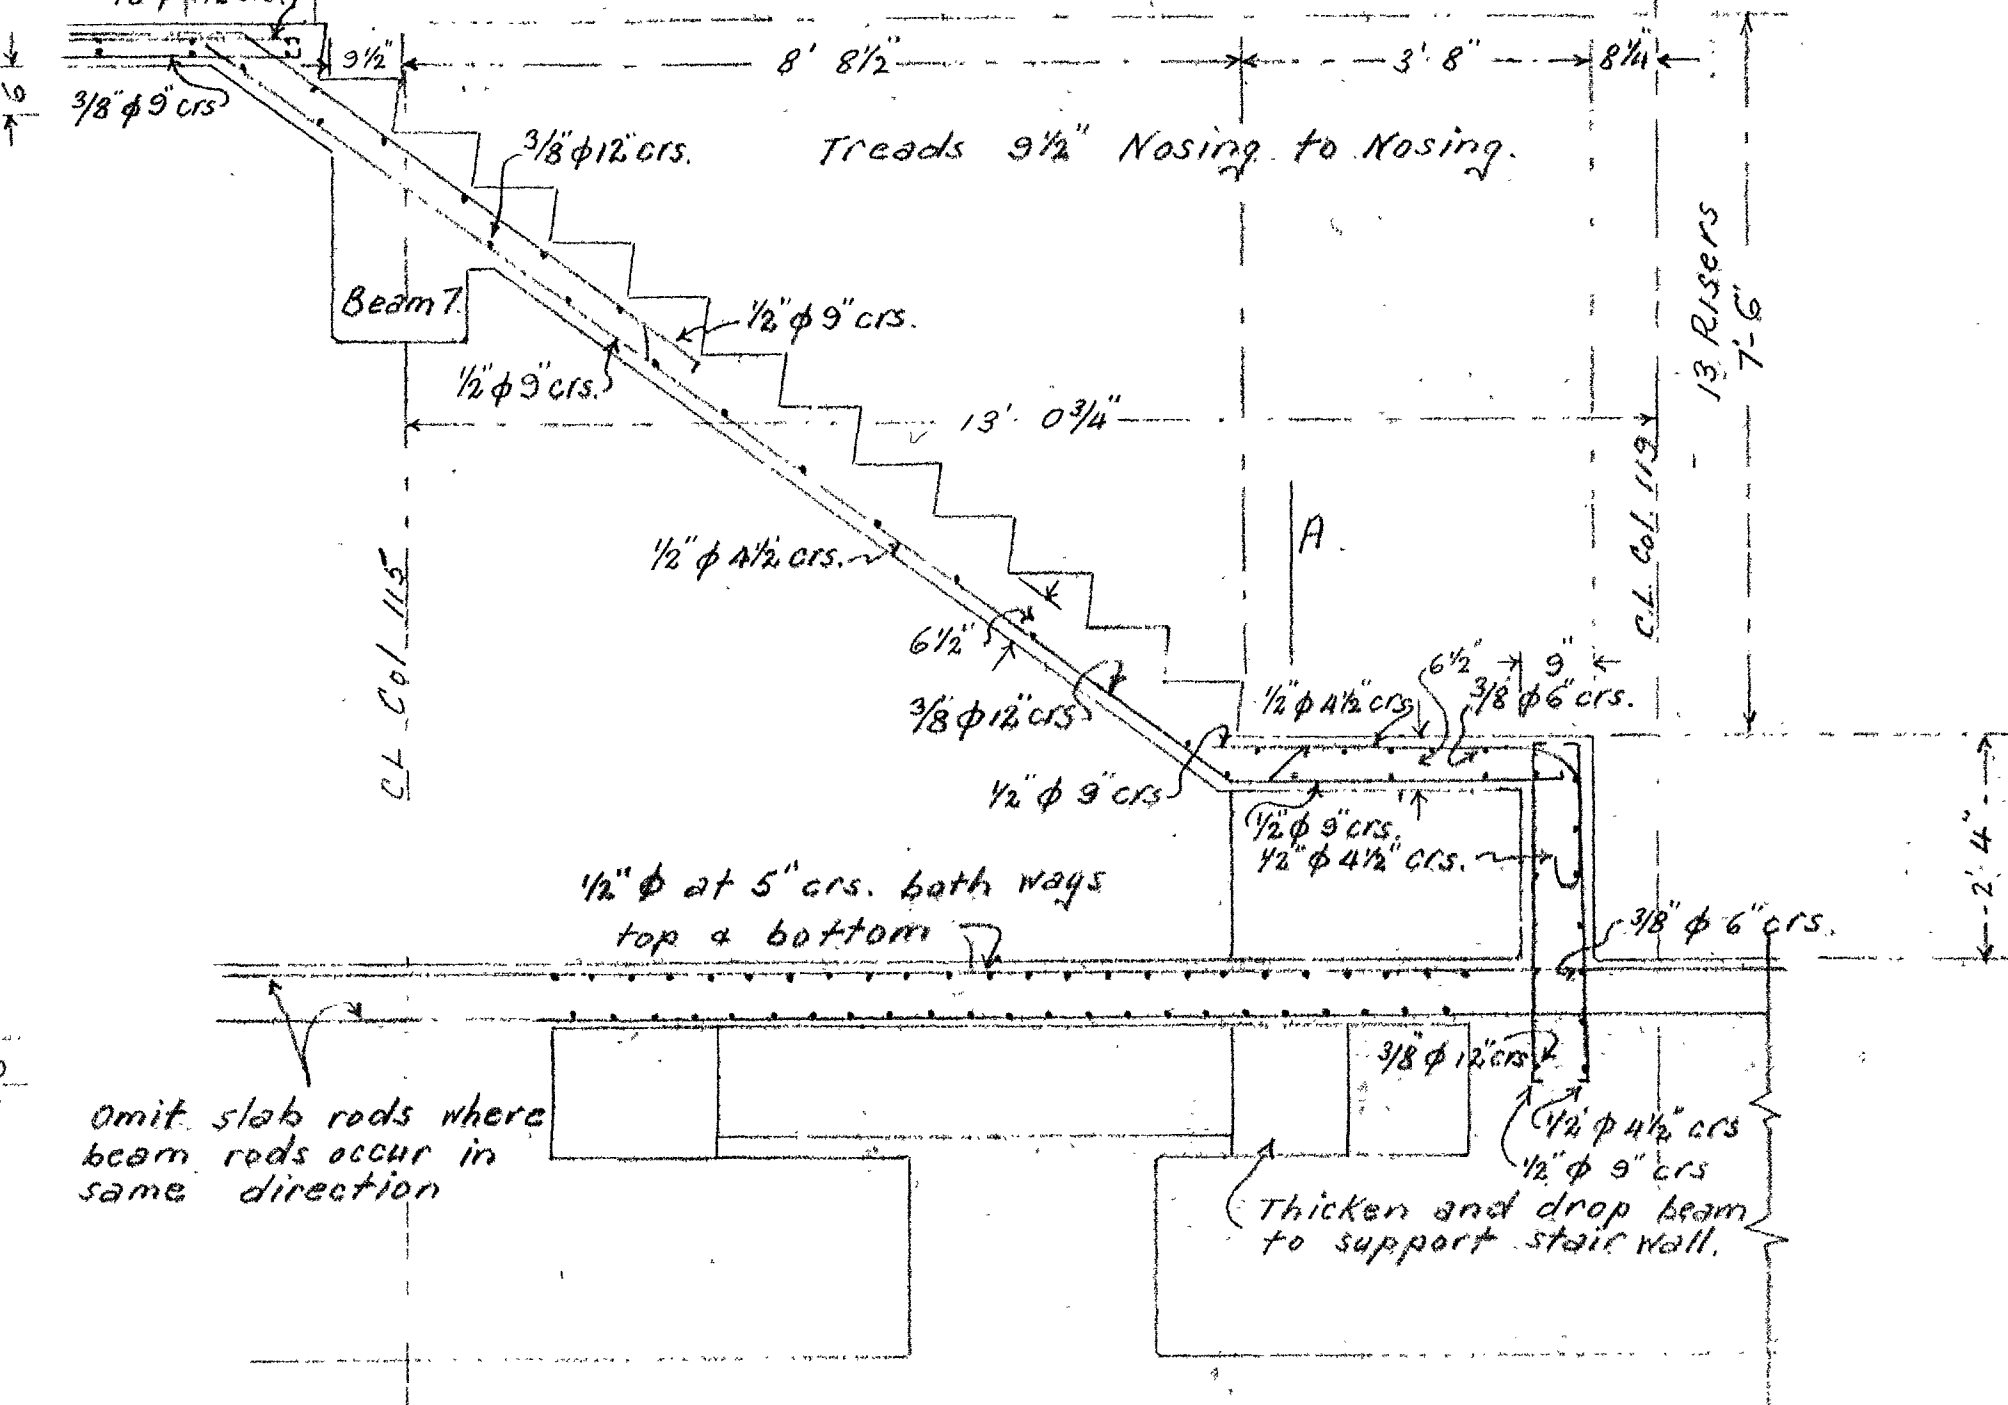 9½"
8' 8½"
3' 8"
8¼"
6
3/8" ϕ 9" crs
3/8" ϕ 12" crs.
Treads 9½" Nosing to Nosing.
13 Risers
7'-6"
Beam 7.
½" ϕ 9" crs.
½" ϕ 9" crs.
13' 0¾"
C.L. Col. 119
A.
½" ϕ 4½ crs.
CL Col 115
6½"
3/8 ϕ 12" crs
6½"
9"
½" ϕ 4½" crs
3/8" ϕ 6" crs.
½" ϕ 9" crs
½" ϕ 9" crs.
½" ϕ 4½" crs.
2' 4"
½" ϕ at 5" crs. both ways
top & bottom
3/8" ϕ 6" crs.
3/8" ϕ 12" crs
Omit slab rods where
beam rods occur in
same direction
½" ϕ 4½" crs
½" ϕ 9" crs
Thicken and drop beam
to support stair wall.